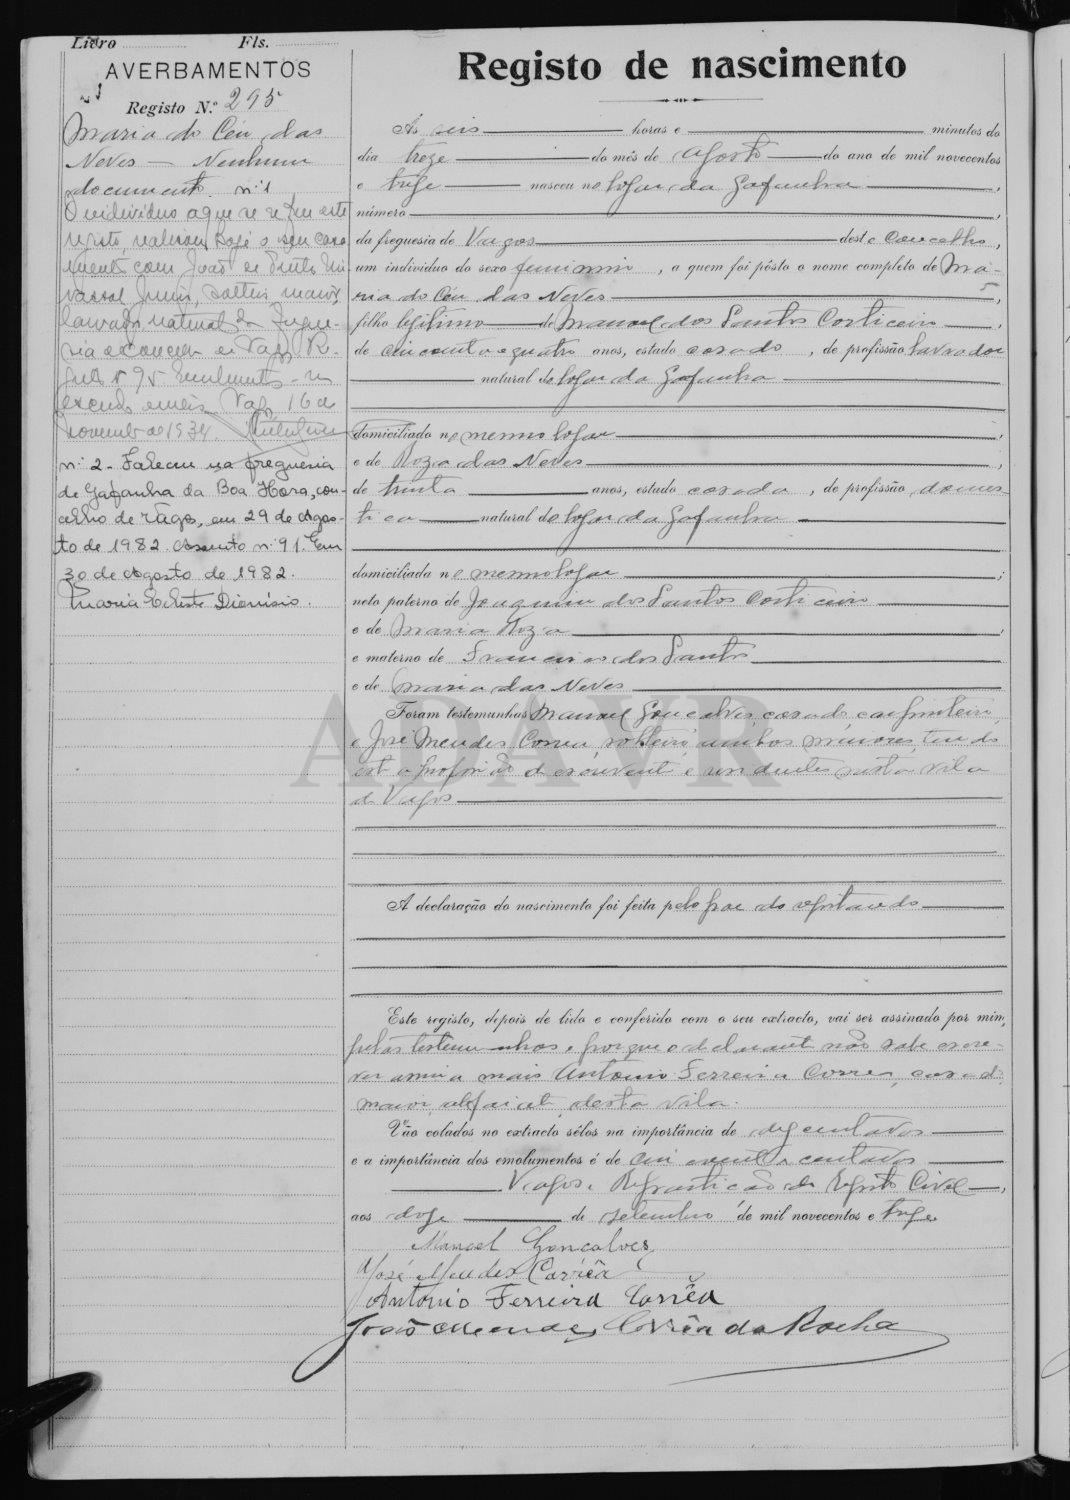 Livro Fls.
AVERBAMENTOS
Registo N.º 295
Maria do Céu das
Neves — Nenhum
documento. nº 1
O individuo a que se refere este
registo, realisou hoje o seu casa-
mento com João dos Santos
Junior, solteiro, maior,
lavrador natural da fregue-
sia e concelho de Vagos. Re-
gisto nº 95
Vagos, 16 de
novembro de 1934.
nº 2 - Faleceu na freguesia
de Gafanha da Boa Hora, con-
celho de Vagos, em 29 de Agos-
to de 1982. Assento nº 91. Em
30 de Agosto de 1982.
Maria Celeste Dionísio.
Registo de nascimento
Ás seis horas e minutos do
dia treze do mês de Agosto do ano de mil novecentos
e treze nasceu no logar da Gafanha,
número,
da freguesia de Vagos deste concelho,
um individuo do sexo feminino, a quem foi pôsto o nome completo de Ma-
ria do Céu das Neves,
filho legitimo de Manoel dos Santos Corticeiro,
de cincoenta e quatro anos, estado casado, de profissão lavrador
natural do logar da Gafanha
domiciliado no mesmo logar,
e de Roza das Neves,
de trinta anos, estado casada, de profissão domes-
tica natural do logar da Gafanha
domiciliada no mesmo logar;
neto paterno de Joaquim dos Santos Corticeiro
e de Maria Roza,
e materno de Francisco dos Santos
e de Maria das Neves
Foram testemunhas Manoel Gonçalves, casado, carpinteiro,
e José Mendes Correa, solteiro, ambos maiores, tendo
este a profissão de escrevente e residentes nesta vila
de Vagos
ADAVR
A declaração do nascimento foi feita pelo pae do registando
Este registo, depois de lido e conferido com o seu extracto, vai ser assinado por mim,
pelas testemunhas e porque o declarante não sabe escre-
ver assina mais Antonio Ferreira Correa, casado,
maior, alfaiate, desta vila.
Vão colados no extracto sêlos na importância de
e a importância dos emolumentos é de centavos
Vagos e Repartição do Registo Civil,
aos doze de setembro de mil novecentos e treze
Manoel Gonçalves
José Mendes Corrêa
Antonio Ferreira Corrêa
João Mendes Corrêa da Rocha